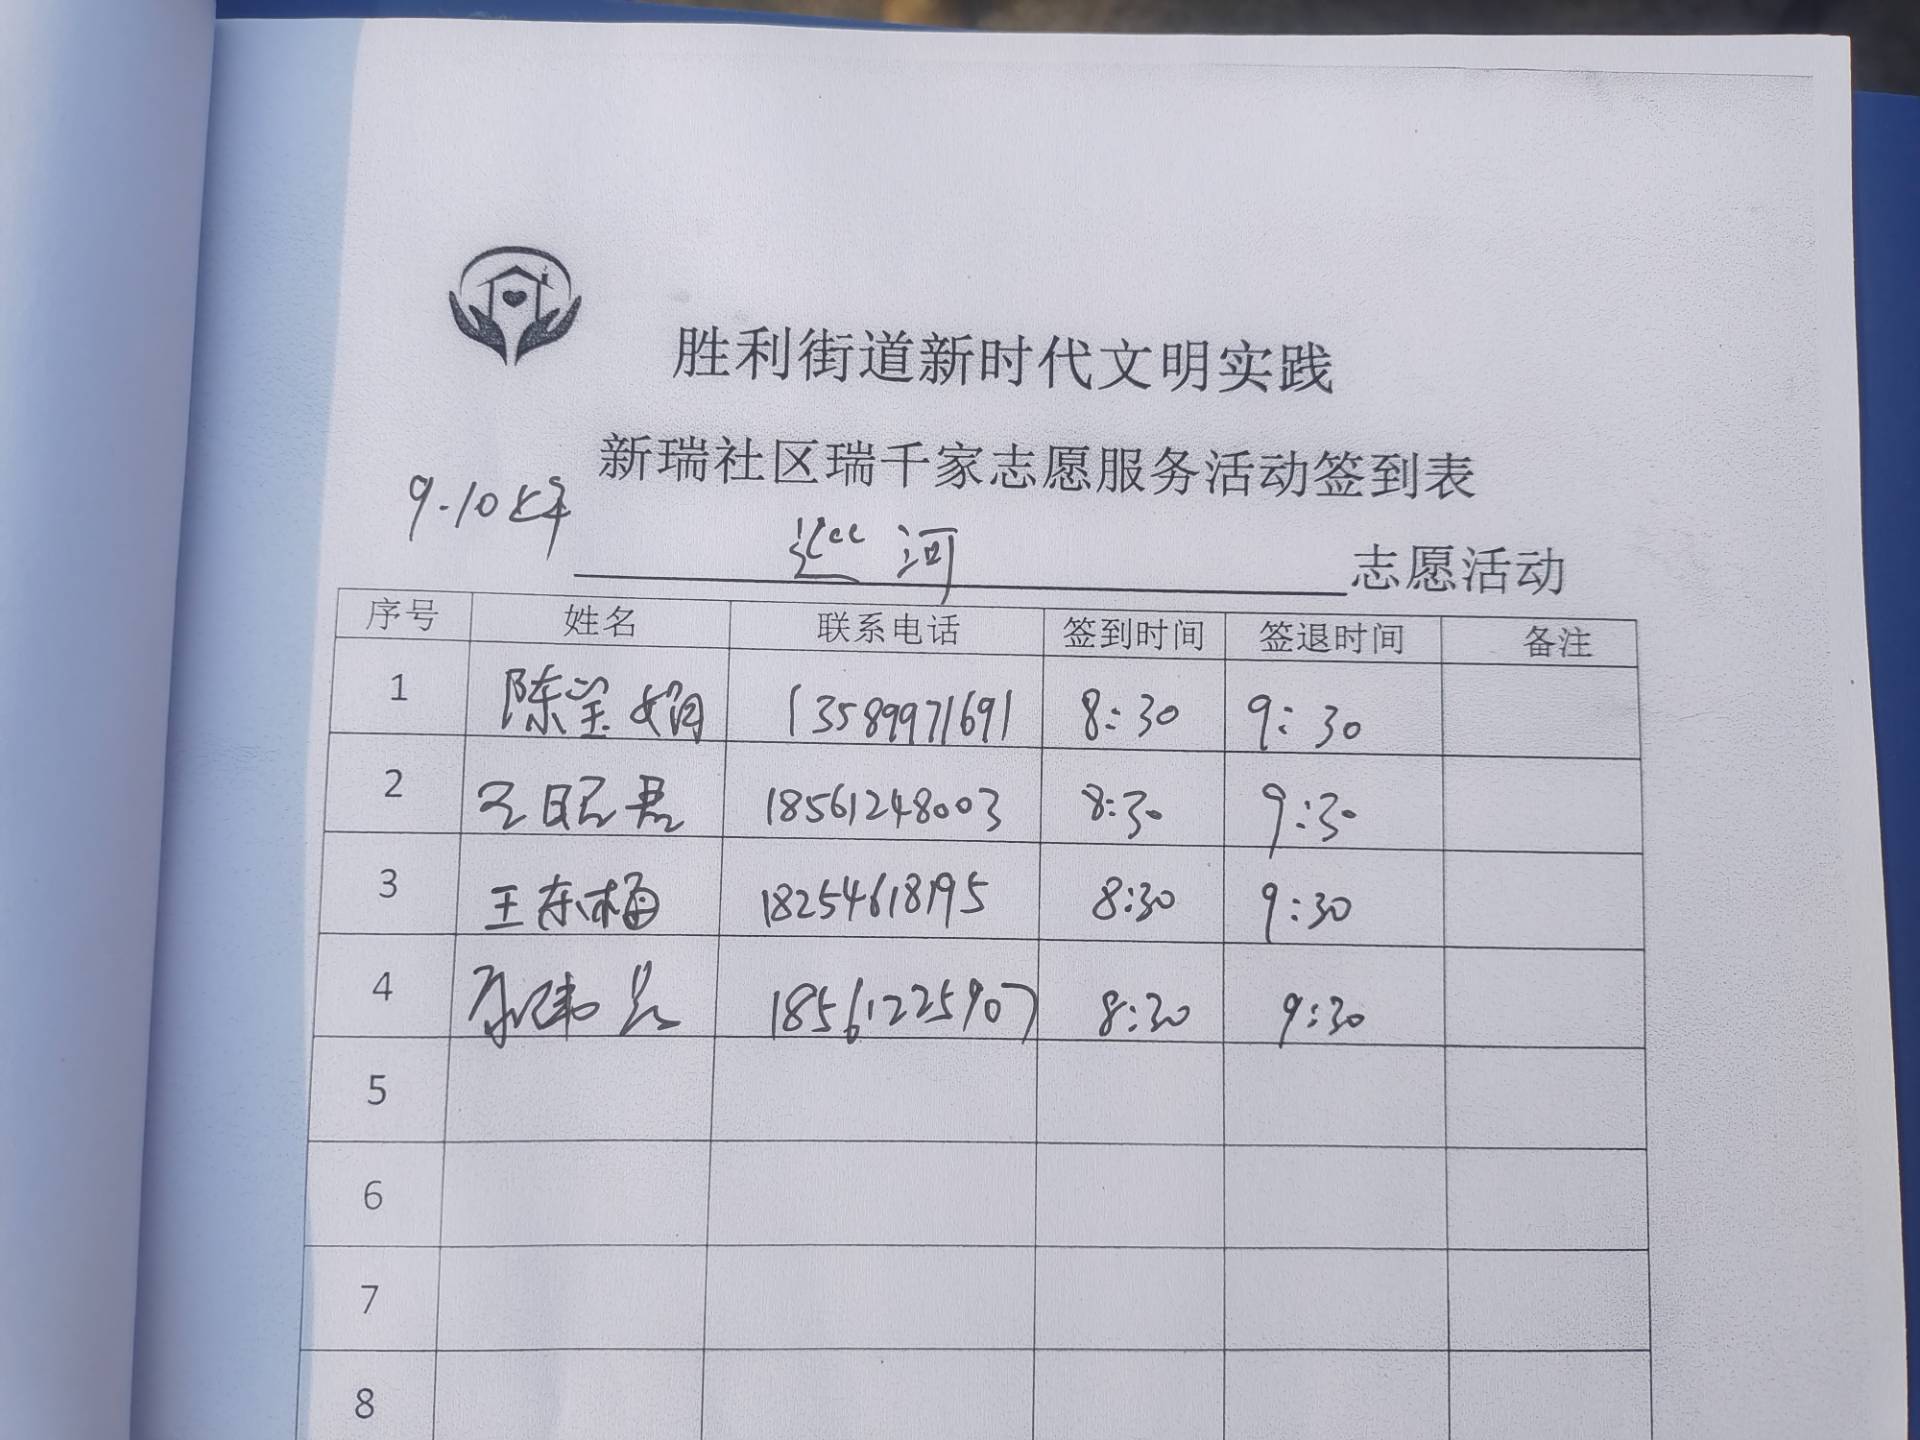 胜利街道新时代文明实践
新瑞社区瑞千家志愿服务活动签到表
9.10上午
巡河 志愿活动
序号 姓名 联系电话 签到时间 签退时间 备注
1 陈宝娟 13589971691 8:30 9:30
2 王昭君 18561248003 8:30 9:30
3 王东梅 18254618195 8:30 9:30
4 18561225907 8:30 9:30
5
6
7
8